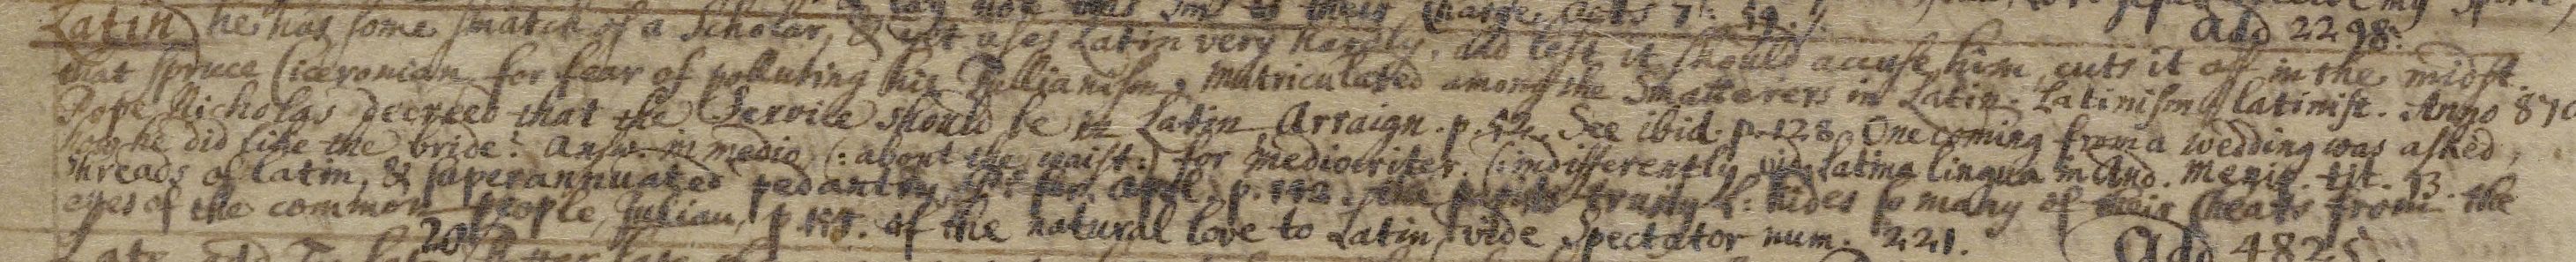 lay not this sin to their Charge, Acts 7. 59.
Add 2298.
Latin) he has some smatch of a Scholar, & yet uses Latin very hardly, and lest it should accuse him, cuts it off in the midst.
that spruce Ciceronian for fear of polluting his Tullianism, Matriculated among the Smatterers in Latin. Latinism, latinist. Anno 870
Pope Nicholas decreed that the Service should be in Latin, Arraign. p. 52. See ibid. p. 128. One coming from a wedding was asked,
how he did like the bride? Answ. in medio (: about the waist:) for mediocriter. (: indifferently vid. latina lingua in And. Menip. tit. 13.
threads of latin, & superannuated pedantry, p. 192. trusty L: hides so many of their Cheats from the
eyes of the common people, Julian, p. of the natural love to Latin, vide Spectator num. 221.
Add 4825.
20